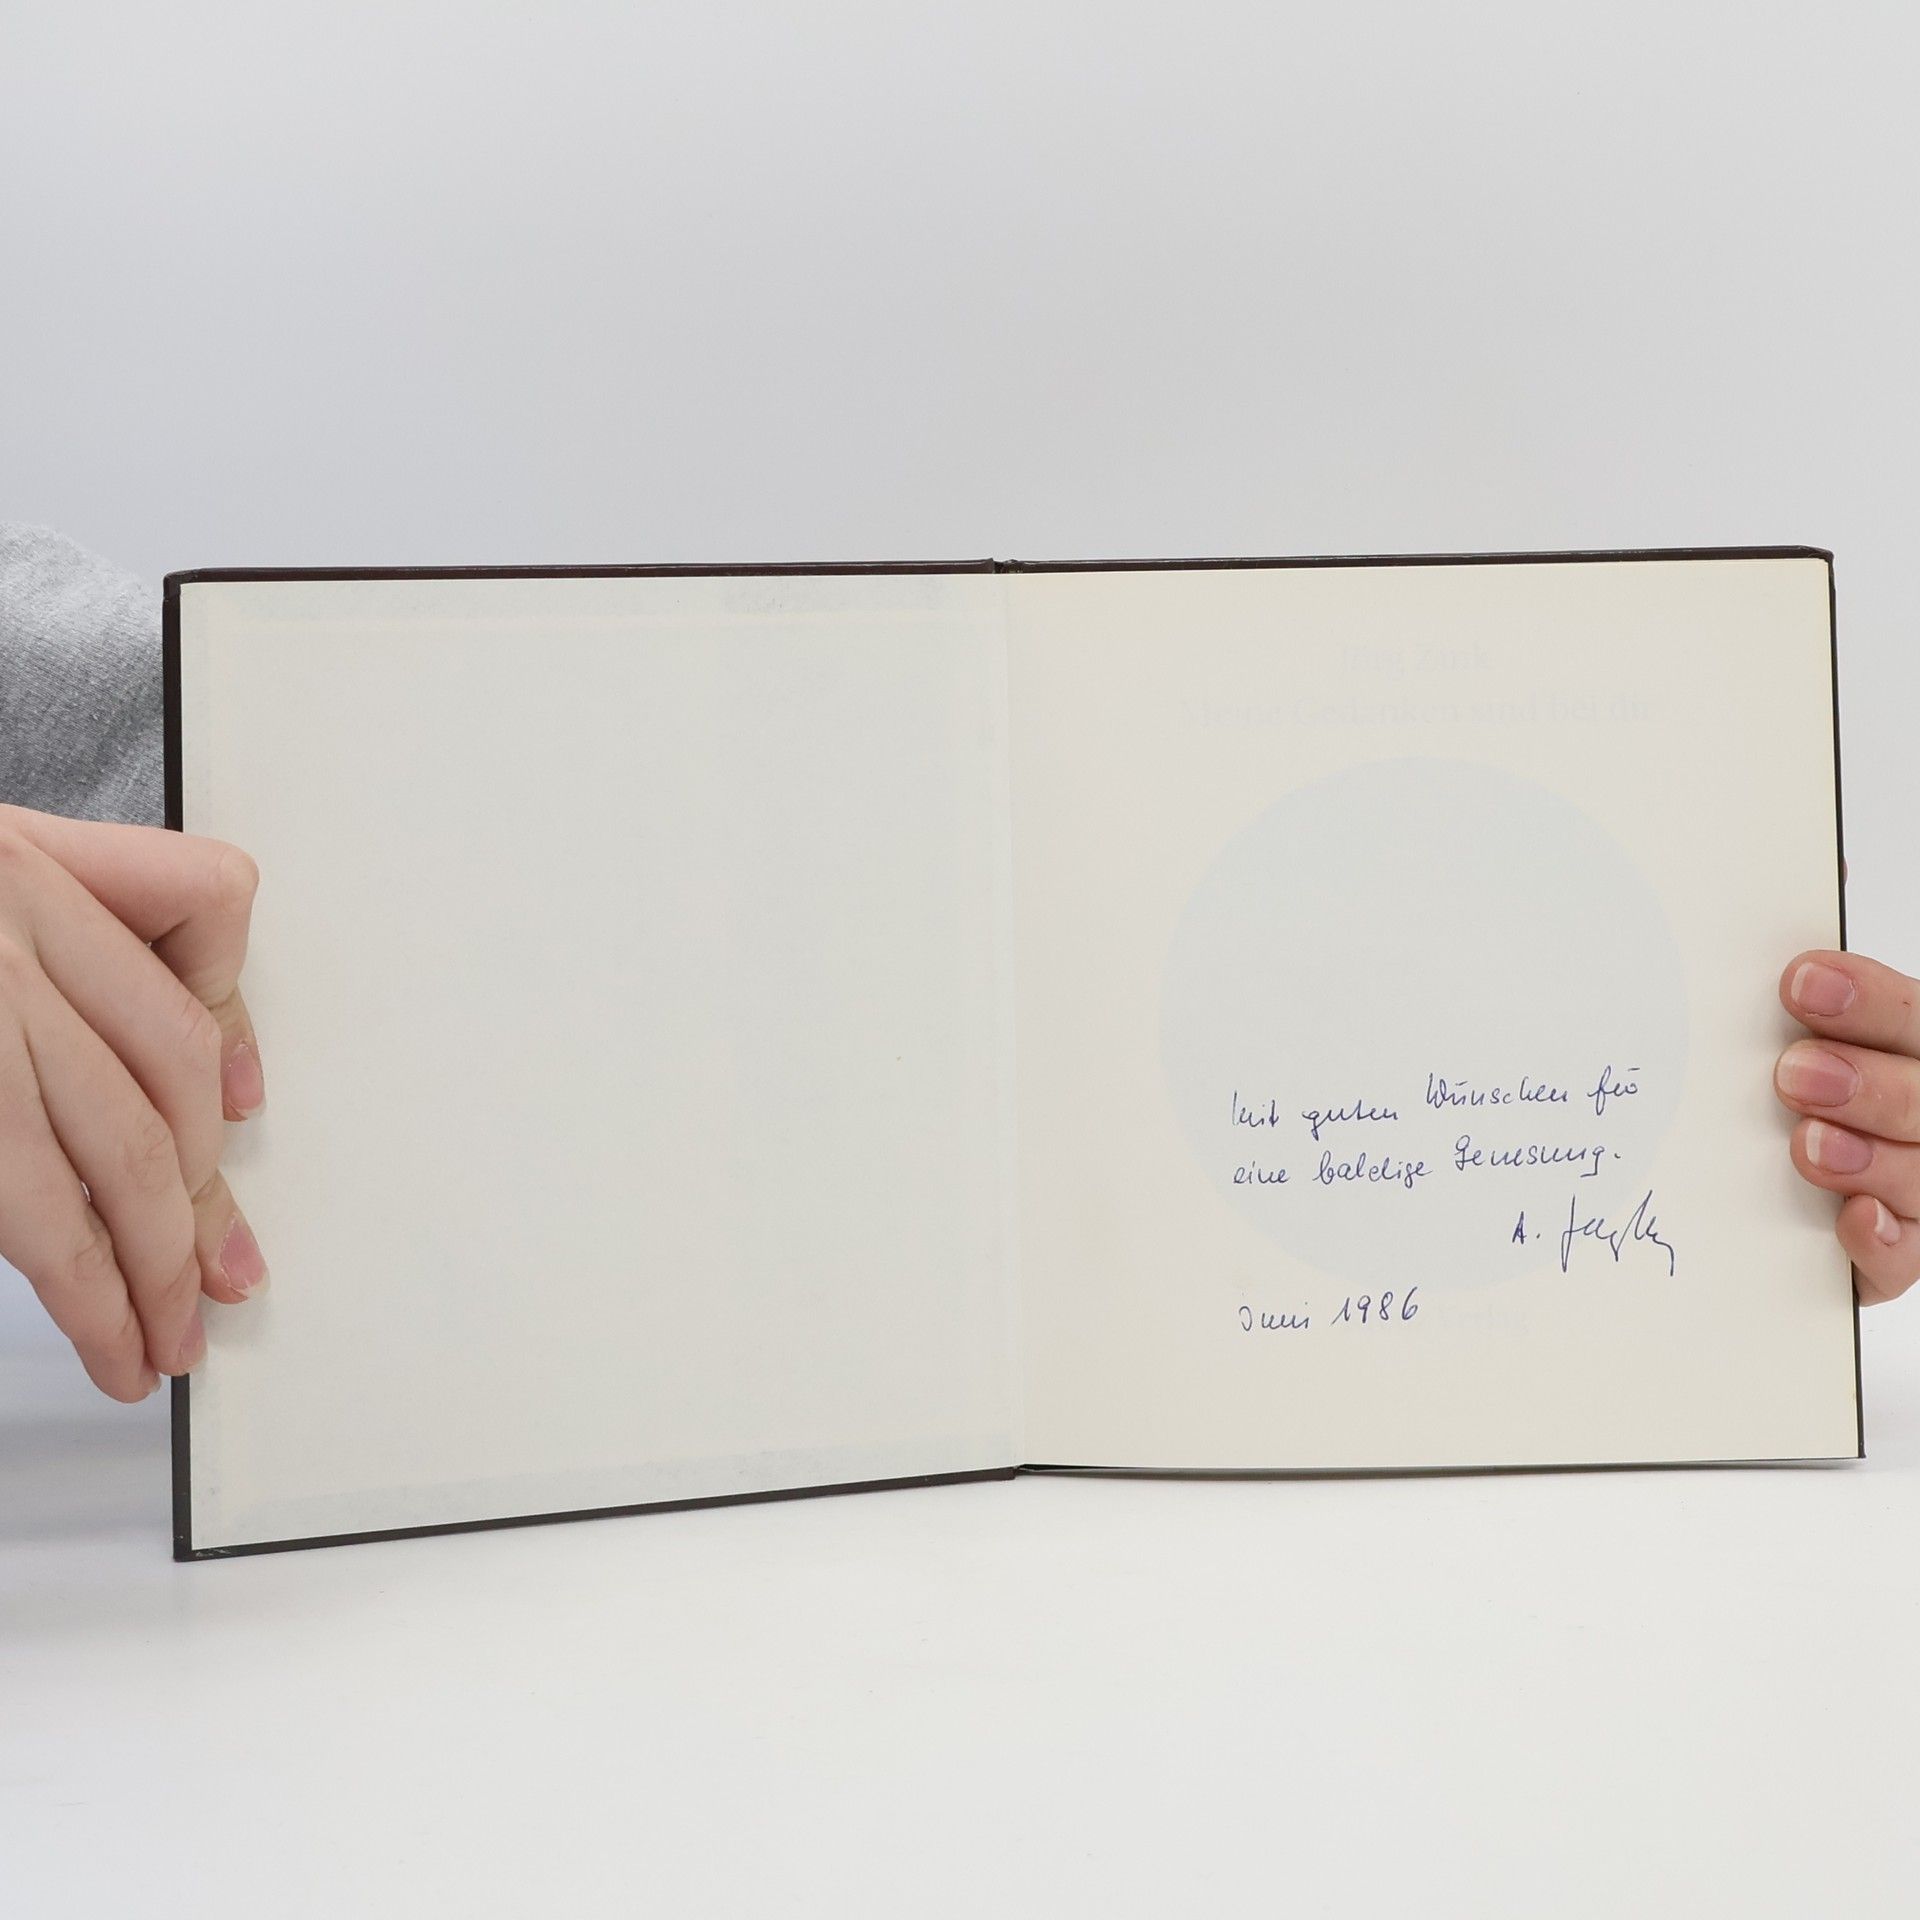 Jörg Zink
Meine Gedanken sind bei dir
Mit guten Wünschen für
eine baldige Genesung.
A.
Juni 1986